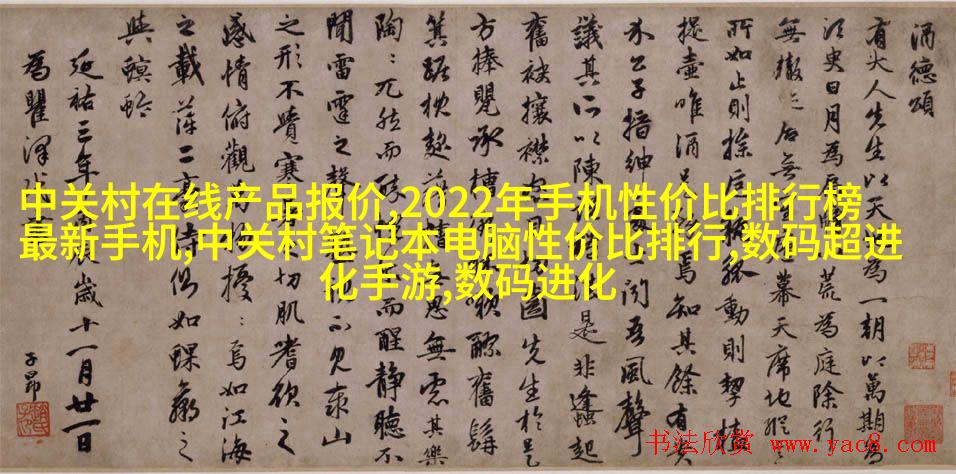 中关村在线产品报价,2022年手机性价比排行榜
最新手机,中关村笔记本电脑性价比排行,数码超进
化手游,数码进化
酒德頌
有大人先生以天為一朝以萬期為
須臾日月為八荒為庭除行
無轍迹居無幕天席地縱
所如止則操卮執觚動則挈榼
提壺唯酒是焉知其餘有貴
介公子搢紳處聞吾風聲
議其所以陳是非鋒起
奮袂攘襟先生於是
方捧甖承槽漱醪奮髯
箕踞枕麴藉糟無思無慮其樂
陶：兀然而醉而醒靜聽不
聞雷霆之聲不見泰山
之形不覺寒暑之切肌嗜欲之
感情俯觀萬物擾：焉如江海
之載萍二豪侍側如蜾蠃之
與螟蛉
延祐三年歲十一月廿一日
為瞿澤
子昂
书法欣赏 www.yac8.com